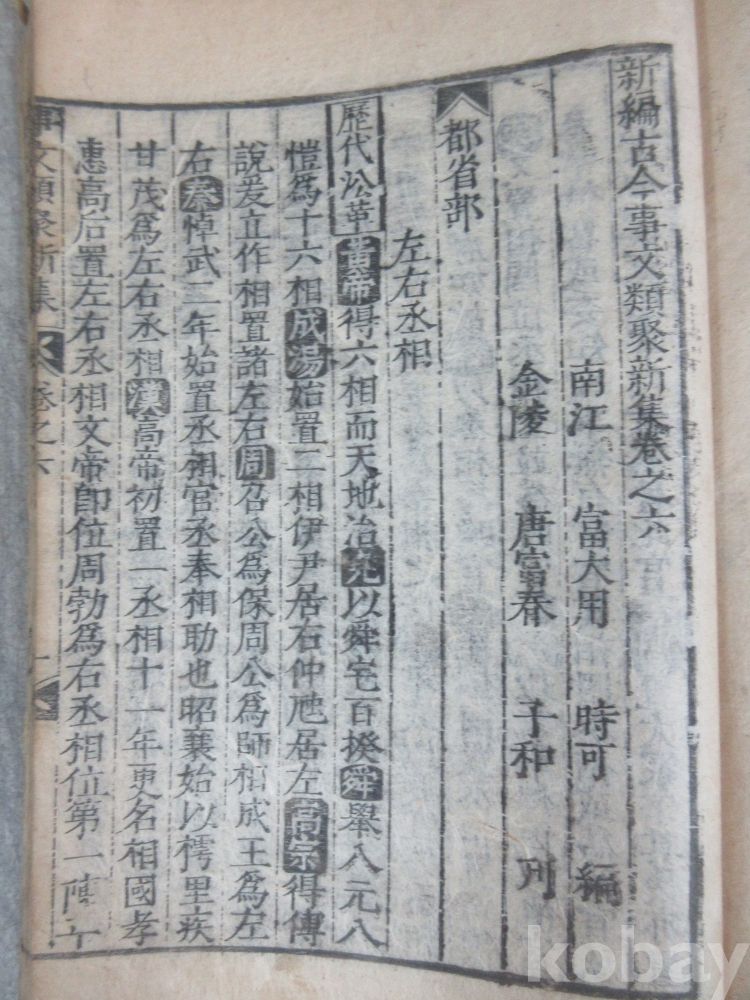 新編古今事文類聚新集卷之六
南江 富大用 時可 編
金陵 唐富春 子和 刋
都省部
左右丞相
歷代㳂革 黃帝得六相而天地治堯以舜宅百揆舜舉八元八
愷爲十六相成湯始置二相伊尹居右仲虺居左高宗得傅
說爰立作相置諸左右周召公爲保周公爲師相成王爲左
右秦悼武二年始置丞相官丞奉相助也昭襄始以樗里疾
甘茂爲左右丞相漢高帝初置一丞相十一年更名相國孝
惠高后置左右丞相文帝卽位周勃爲右丞相位第一陳平
事文類聚新集 卷之六 一
kobay